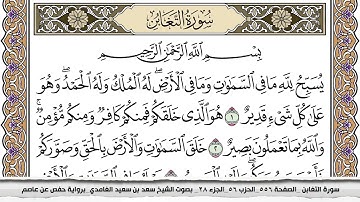 سُورَةُ التَّغَابُنِ
بِسْمِ اللَّهِ الرَّحْمَٰنِ الرَّحِيمِ
يُسَبِّحُ لِلَّهِ مَا فِي السَّمَاوَاتِ وَمَا فِي الْأَرْضِ ۖ لَهُ الْمُلْكُ وَلَهُ الْحَمْدُ ۖ وَهُوَ
عَلَىٰ كُلِّ شَيْءٍ قَدِيرٌ ١ هُوَ الَّذِي خَلَقَكُمْ فَمِنكُمْ كَافِرٌ وَمِنكُم مُّؤْمِنٌ ۚ
وَاللَّهُ بِمَا تَعْمَلُونَ بَصِيرٌ ٢ خَلَقَ السَّمَاوَاتِ وَالْأَرْضَ بِالْحَقِّ وَصَوَّرَكُمْ
سورة التغابن _الصفحة ٥٥٦ _الحزب ٥٦ _الجزء ٢٨ _ بصوت الشيخ سعد بن سعيد الغامدي _برواية حفص عن عاصم